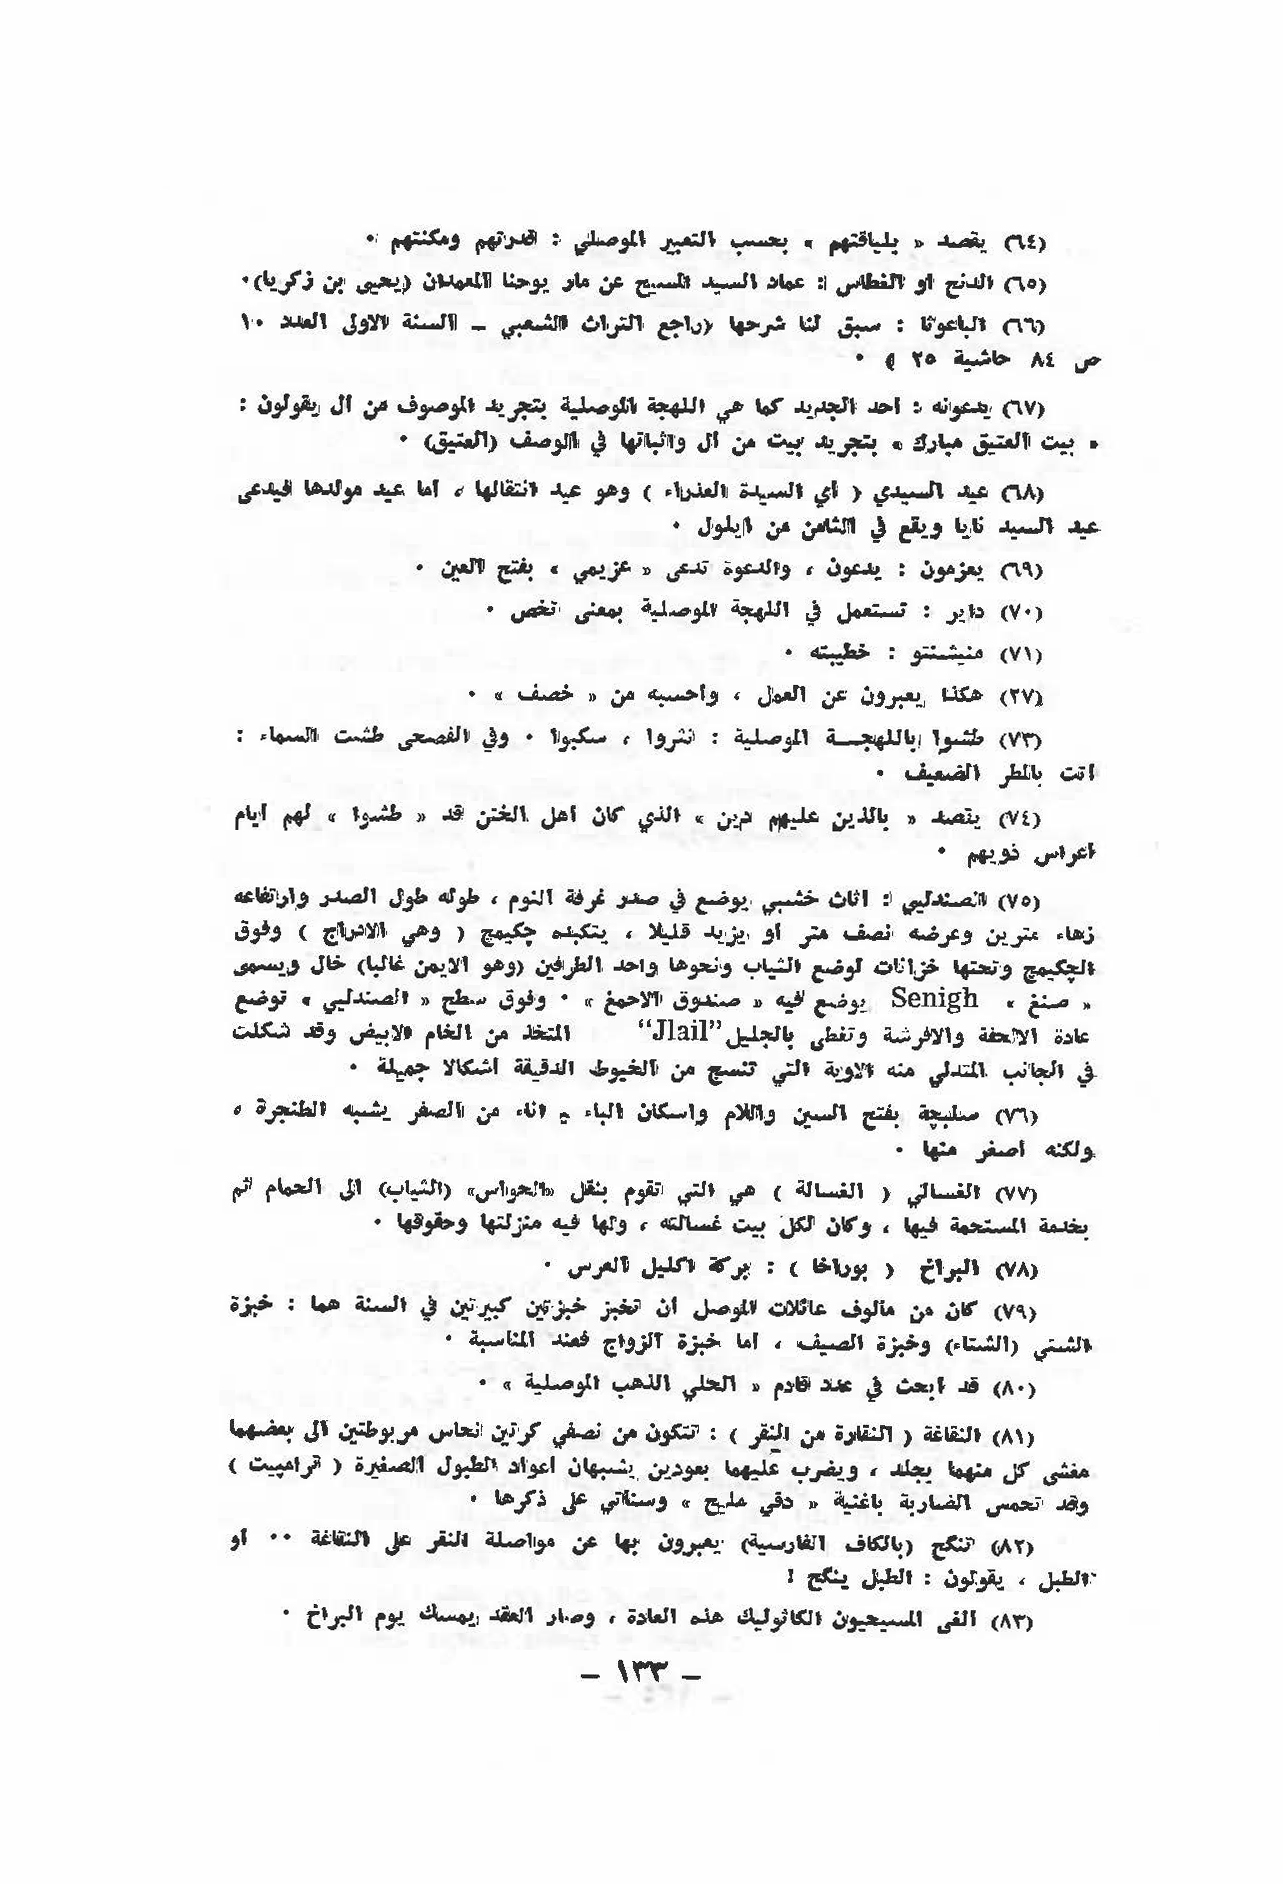 (٦٤) يقصد « بلياقتهم » بحسب التعبير الموصلي : قدرتهم ومكنتهم .
(٦٥) الدنح او الغطاس : عماد السيد المسيح عن مار يوحنا المعمدان (يحيى بن زكريا) .
(٦٦) الباعوثا : سبق لنا شرحها (راجع التراث الشعبي ــ السنة الاولى العدد ١٠
ص ٨٤ حاشية ٢٥ ) .
(٦٧) يدعونه : احد الجديد كما هي اللهجة الموصلية بتجريد الموصوف من ال يقولون :
« بيت العتيق مبارك » بتجريد بيت من ال واثباتها في الوصف (العتيق) .
(٦٨) عيد السيدي ( اي السيدة العذراء ) وهو عيد انتقالها ، اما عيد مولدها فيدعى
عيد السيد نايا ويقع في الثامن من ايلول .
(٦٩) يعزمون : يدعون ، والدعوة تدعى « عزيمي » بفتح العين .
(٧٠) داير : تستعمل في اللهجة الموصلية بمعنى تخص .
(٧١) منيشنتو : خطيبته .
(٢٧) هكذا يعبرون عن العمل ، واحسبه من « خصف » .
(٧٣) طشوا باللهجـــة الموصلية : نثروا ، سكبوا . وفي الفصحى طشت السماء :
اتت بالمطر الضعيف .
(٧٤) يقصد « بالذين عليهم دين » الذي كان اهل الختن قد « طشوا » لهم ايام
اعراس ذويهم .
(٧٥) الصندليي : اثاث خشبي يوضع في صدر غرفة النوم ، طوله طول الصدر وارتفاعه
زهاء مترين وعرضه نصف متر او يزيد قليلا ، يتكبده چكيمچ ( وهي الادراج ) وفوق
الچكيمچ وتحتها خزانات لوضع الثياب ونحوها واحد الطرفين (وهو الايمن غالبا) خال ويسمى
« صنغ » Senigh يوضع فيه « صندوق الاحمغ » . وفوق سطح « الصندليي » توضع
عادة الالحفة والافرشة وتغطى بالجليل "Jlail" المتخذ من الخام الابيض وقد شكلت
في الجانب المتدلي منه الاوية التي تنسج من الخيوط الدقيقة اشكالا جميلة .
(٧٦) سلبچة بفتح السين واللام واسكان الباء : اناء من الصفر يشبه الطنجرة ،
ولكنه اصغر منها .
(٧٧) الغسالي ( الغسالة ) هي التي تقوم بنقل «الحواس» (الثياب) الى الحمام ثم
بخدمة المستحمة فيها ، وكان لكل بيت غسالته ، ولها فيه منزلتها وحقوقها .
(٧٨) البراخ ( بوراخا ) : بركة اكليل العرس .
(٧٩) كان من مألوف عائلات الموصل ان تخبز خبزتين كبيرتين في السنة هما : خبزة
الشتي (الشتاء) وخبزة الصيف ، اما خبزة الزواج فعند المناسبة .
(٨٠) قد ابحث في عدد قادم « الحلي الذهب الموصلية » .
(٨١) النقاغة ( النقارة من النقر ) : تتكون من نصفي كرتين نحاس مربوطتين الى بعضهما
مغشى كل منهما بجلد ، ويضرب عليهما بعودين يشبهان اعواد الطبول الصغيرة ( ترامپيت )
وقد تحمس الضاربة باغنية « دقي مليح » وسنأتي على ذكرها .
(٨٢) تنگج (بالكاف الفارسية) يعبرون بها عن مواصلة النقر على النقاغة .. او
الطبل ، يقولون : الطبل ينگج !
(٨٣) الغى المسيحيون الكاثوليك هذه العادة ، وصار العقد يمسك يوم البراخ .
– ١٣٣ –